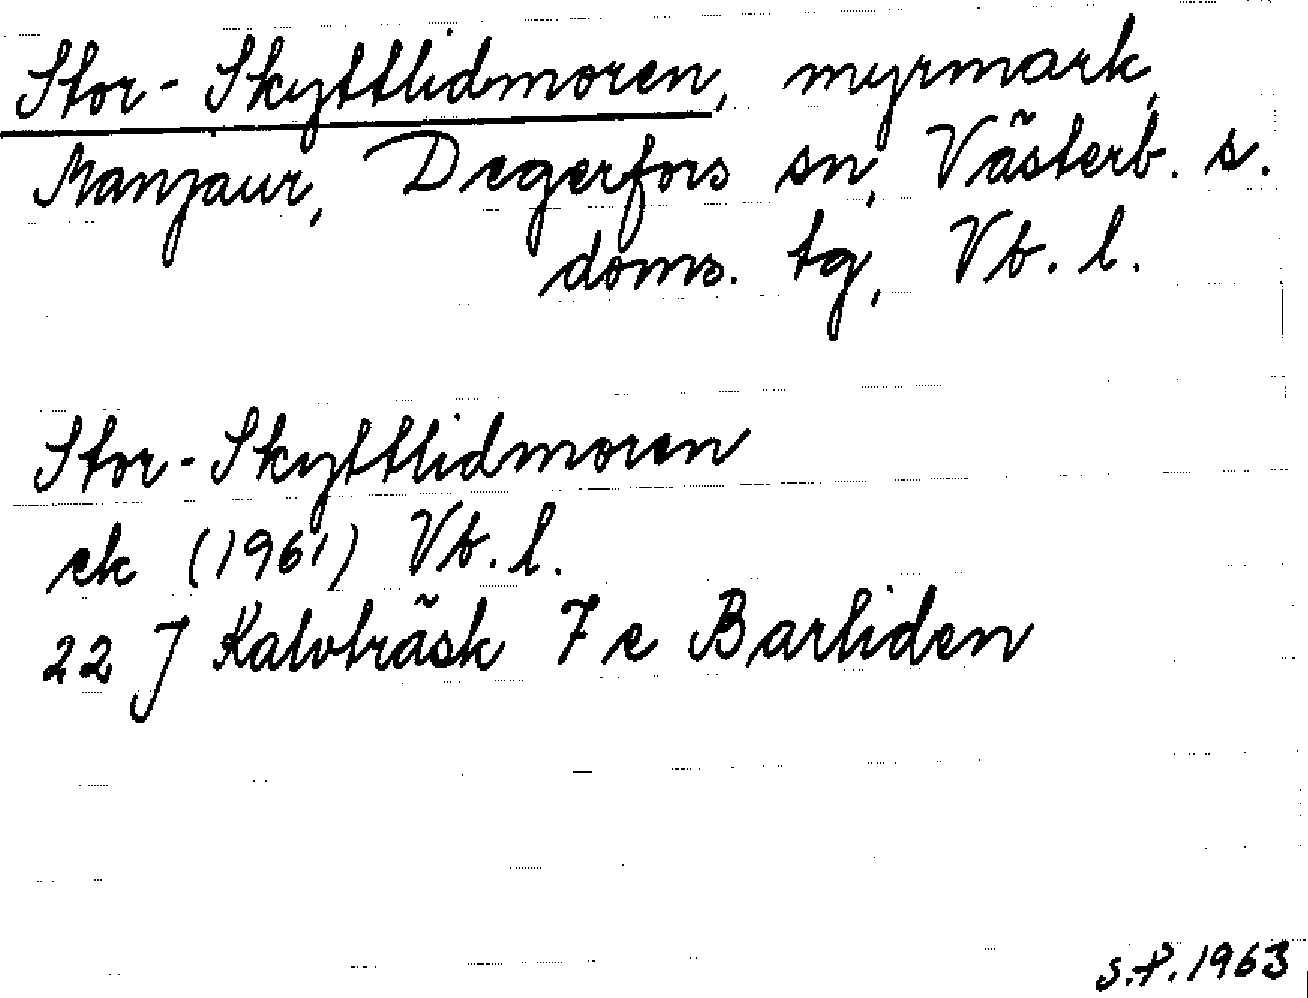 Stor-Skyttlidmoren, myrmark,
Manjaur, Degerfors sn, Västerb. s.
doms. tg, Vb. l.
Stor-Skyttlidmoren
ek (1961) Vb. l.
22 J Kalvträsk 7 e Barliden
S.P. 1963